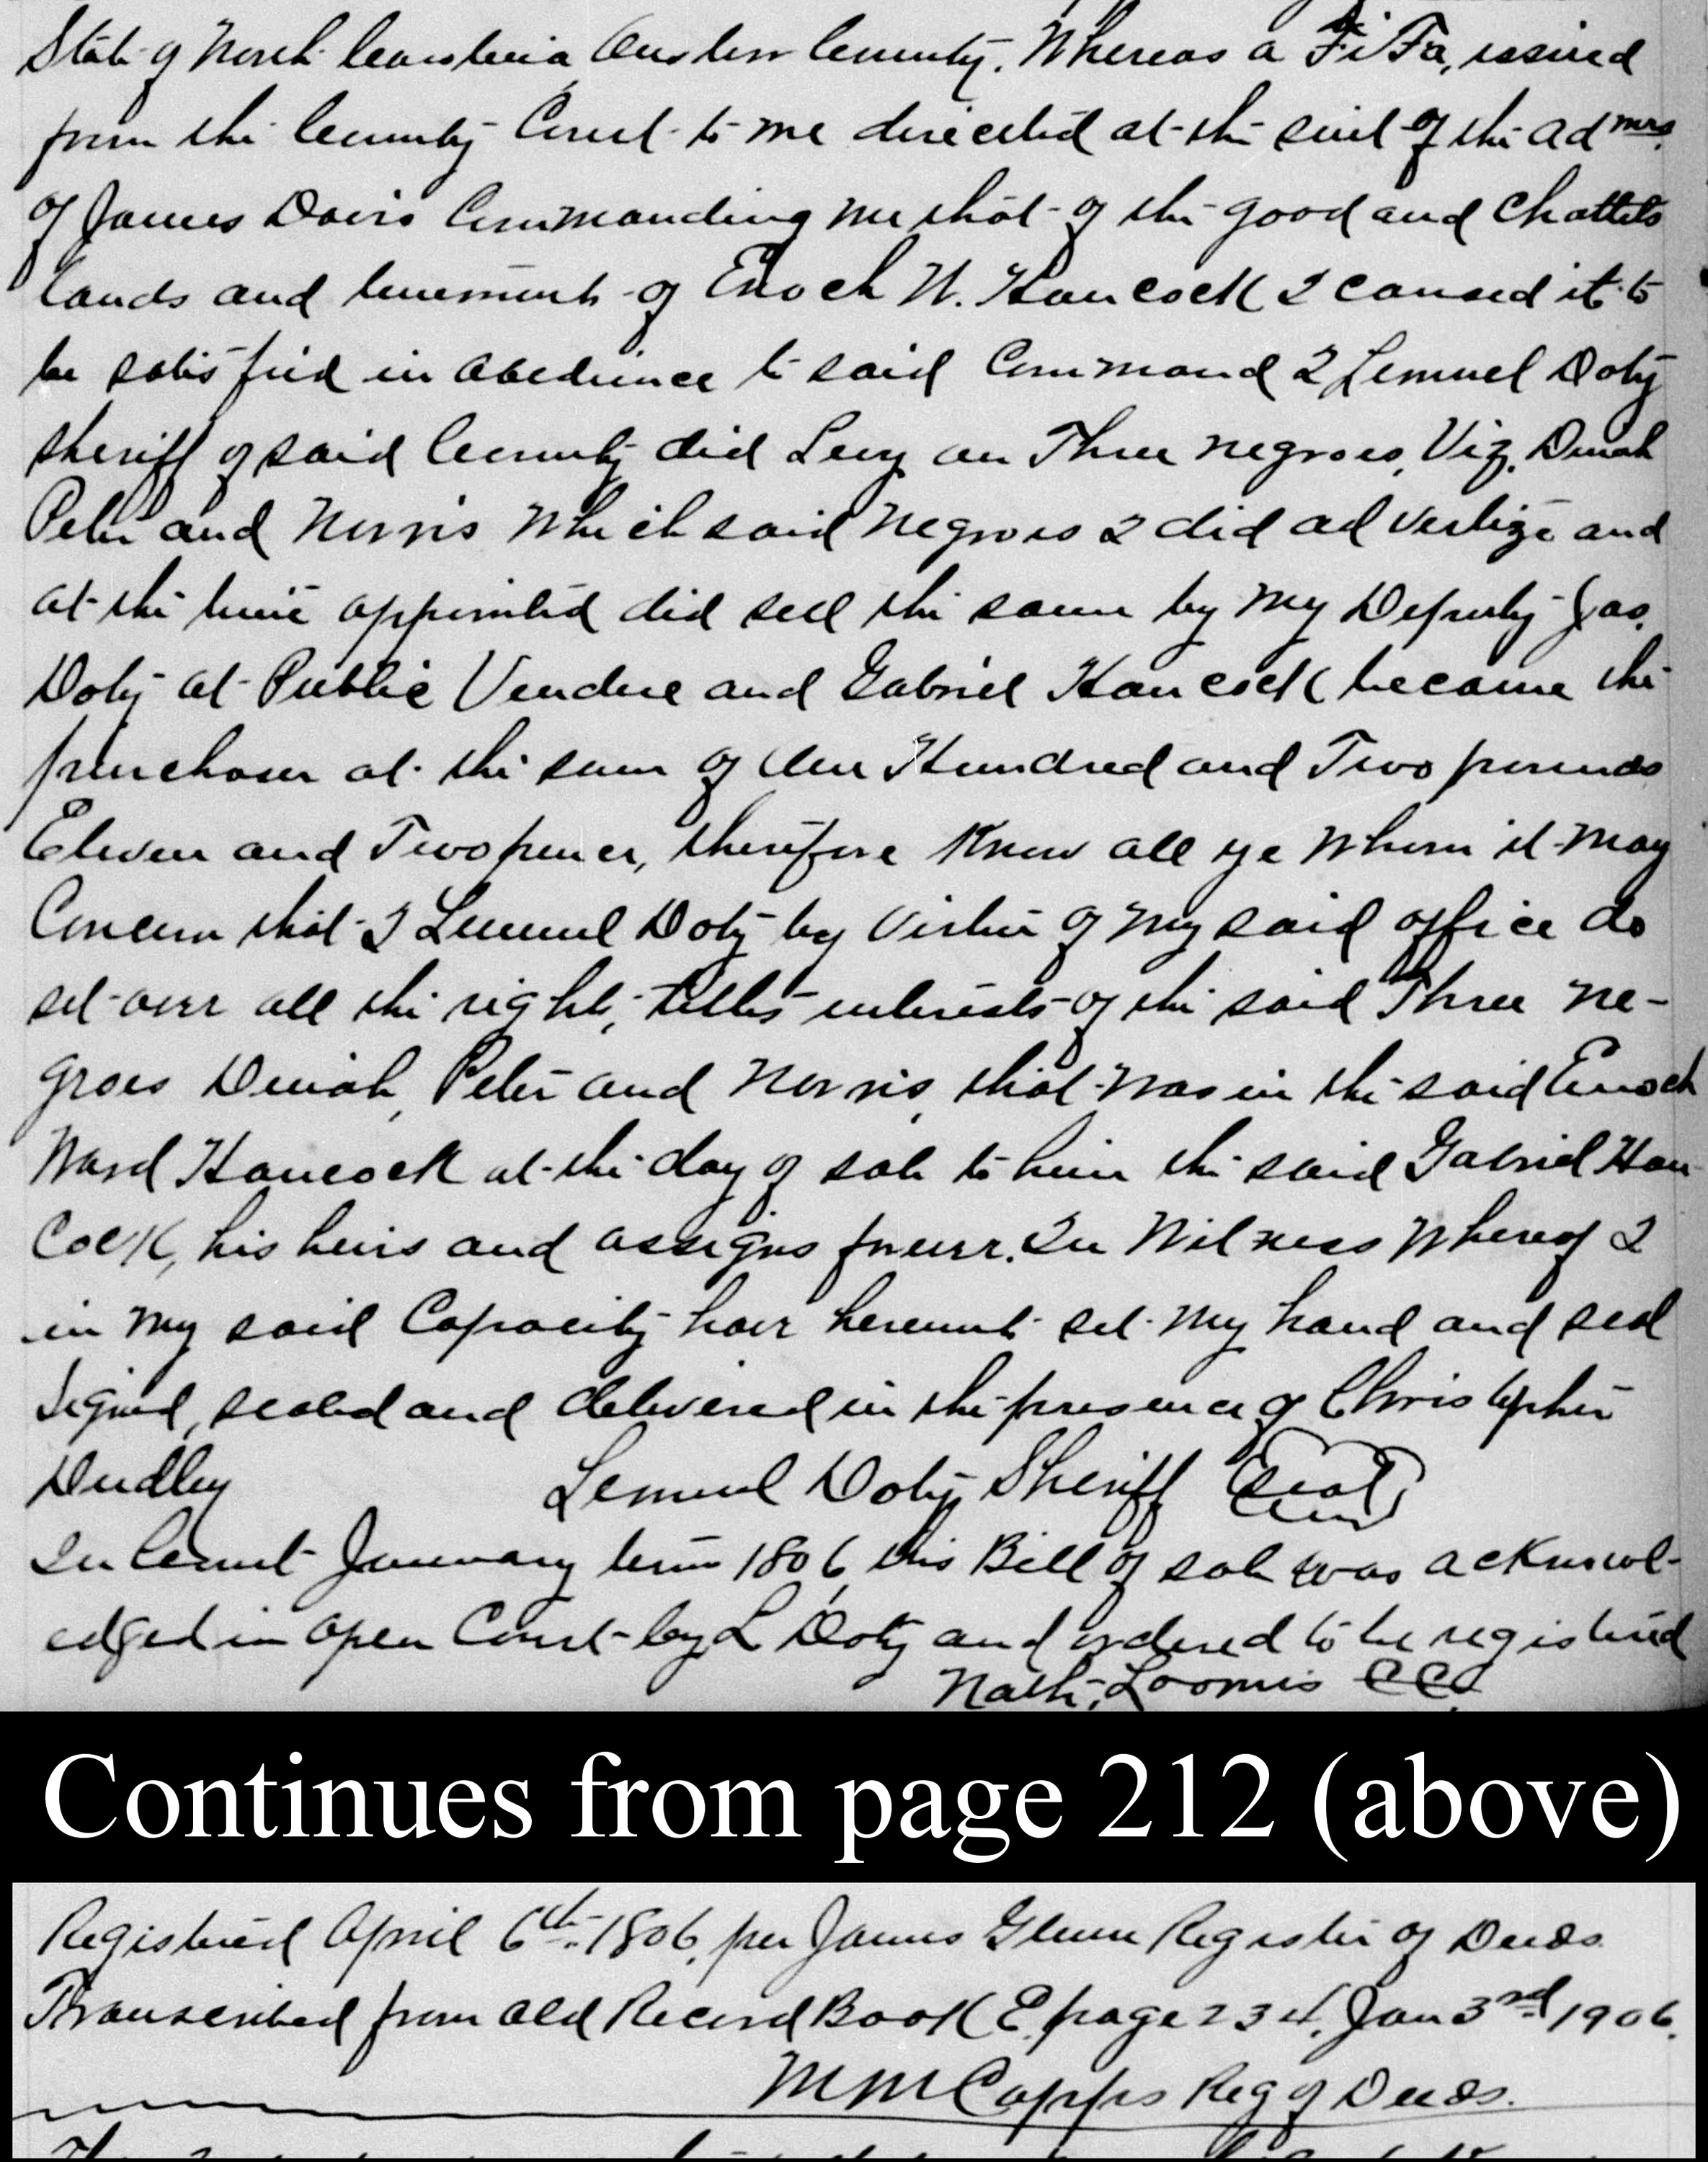 State of North Carolina Onslow County. Whereas a FiFa, issued
from the County Court to me directed at the suit of the Admrs.
of James Davis Commanding me that of the good and Chattels
lands and tenements of Enoch W. Hancock I caused it to
be satisfied in abedience to said Command I Lemuel Doty
Sheriff of said County did Levy on Three negroes, Viz. Dinah
Peter and Norris Which said Negroes I did advertize and
at the time appointed did sell the same by my Deputy Jas.
Doty at Public Vendue and Gabriel Hancock became the
purchaser at the sum of One Hundred and Two pounds
Eleven and Two pence, therefore Know all ye Whom it May
Concern that I Lemuel Doty by Virtue of my said office do
set over all the right, titles interests of the said Three ne-
groes Dinah, Peter and Norris, that was in the said Enoch
Ward Hancock at the day of sale to him the said Gabriel Han
Cock, his heirs and assigns forever. In Witness Whereof I
in my said Capacity have hereunto set my hand and seal
Signed, sealed and delivered in the presence of Christopher
Dudley Lemuel Doty Sheriff Seal
In Court January term 1806, this Bill of sale was acknowl-
edged in open Court by L Doty and ordered to be registered
Nath. Loomis CCC.
Continues from page 212 (above)
Registered April 6th. 1806, per James Glenn Register of Deeds.
Transcribed from Old Record Book E, page 234, Jan 3rd 1906.
M M Capps Reg of Deeds.